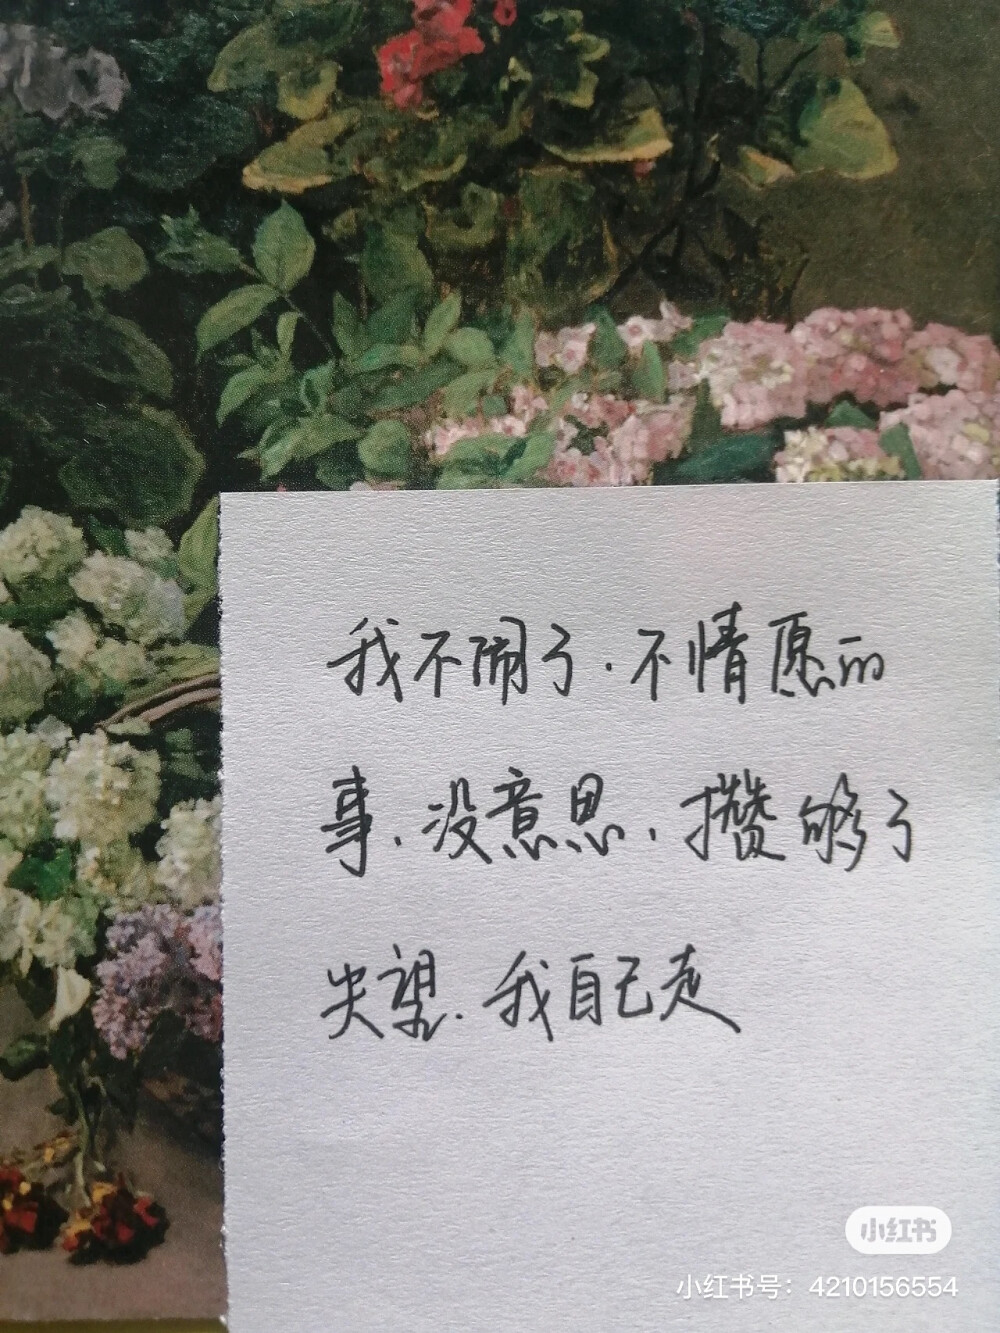 我不闹了.不情愿的
事.没意思.攒够了
失望.我自己走
小红书
小红书号：4210156554